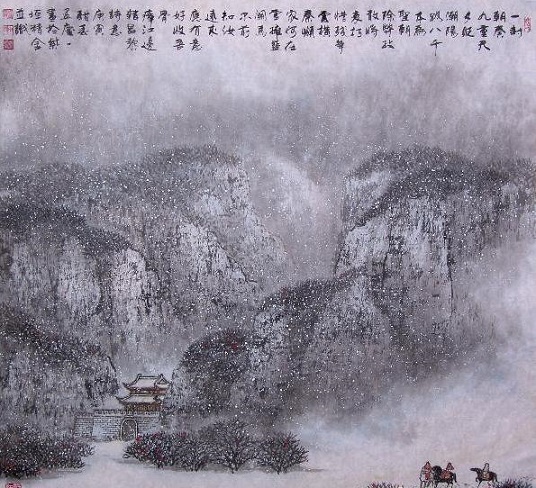 一封
朝奏
九重天
夕貶
潮陽
路八千
本為
聖朝
除弊政
敢將
衰朽
惜殘年
雲橫
秦嶺
家何在
雪擁藍
關馬
不前
知汝
遠来
應有意
好收吾
骨
瘴江邊
韓昌黎
詩意
庚寅
並識